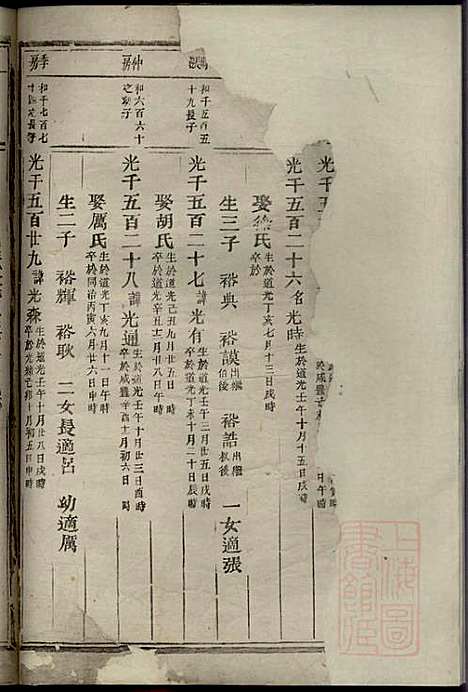 光千五
於咸豐
午時
光千五百二十六名光時生於道光壬午十月十五日戌時
卒於
娶徐氏生於道光丁亥七月十三日戌時
卒於
生三子 裕典 裕謨出繼伯後 裕誥出繼叔後 一女適張
和千五百五十九長子
光千五百二十七諱光有生於道光壬午三月廿五日戌時
卒於道光丁未十月二十日辰時
娶胡氏生於道光己丑九月廿五日時
卒於道光辛丑十二月廿八日午時
仲房
和六百六十之幼子
光千五百二十八諱光通生於道光壬午十月廿三日酉時
卒於咸豐辛酉十月初六日時
娶厲氏生於道光丁亥九月十一日時
卒於同治丙寅六月廿六日申時
生二子 裕輝 裕耿 二女長適呂 幼適厲
季房
和千七百七十四長子
光千五百廿九諱光森生於道光壬午十月廿八日戌時
卒於光緒己卯十月初五日申時
上海圖書館藏